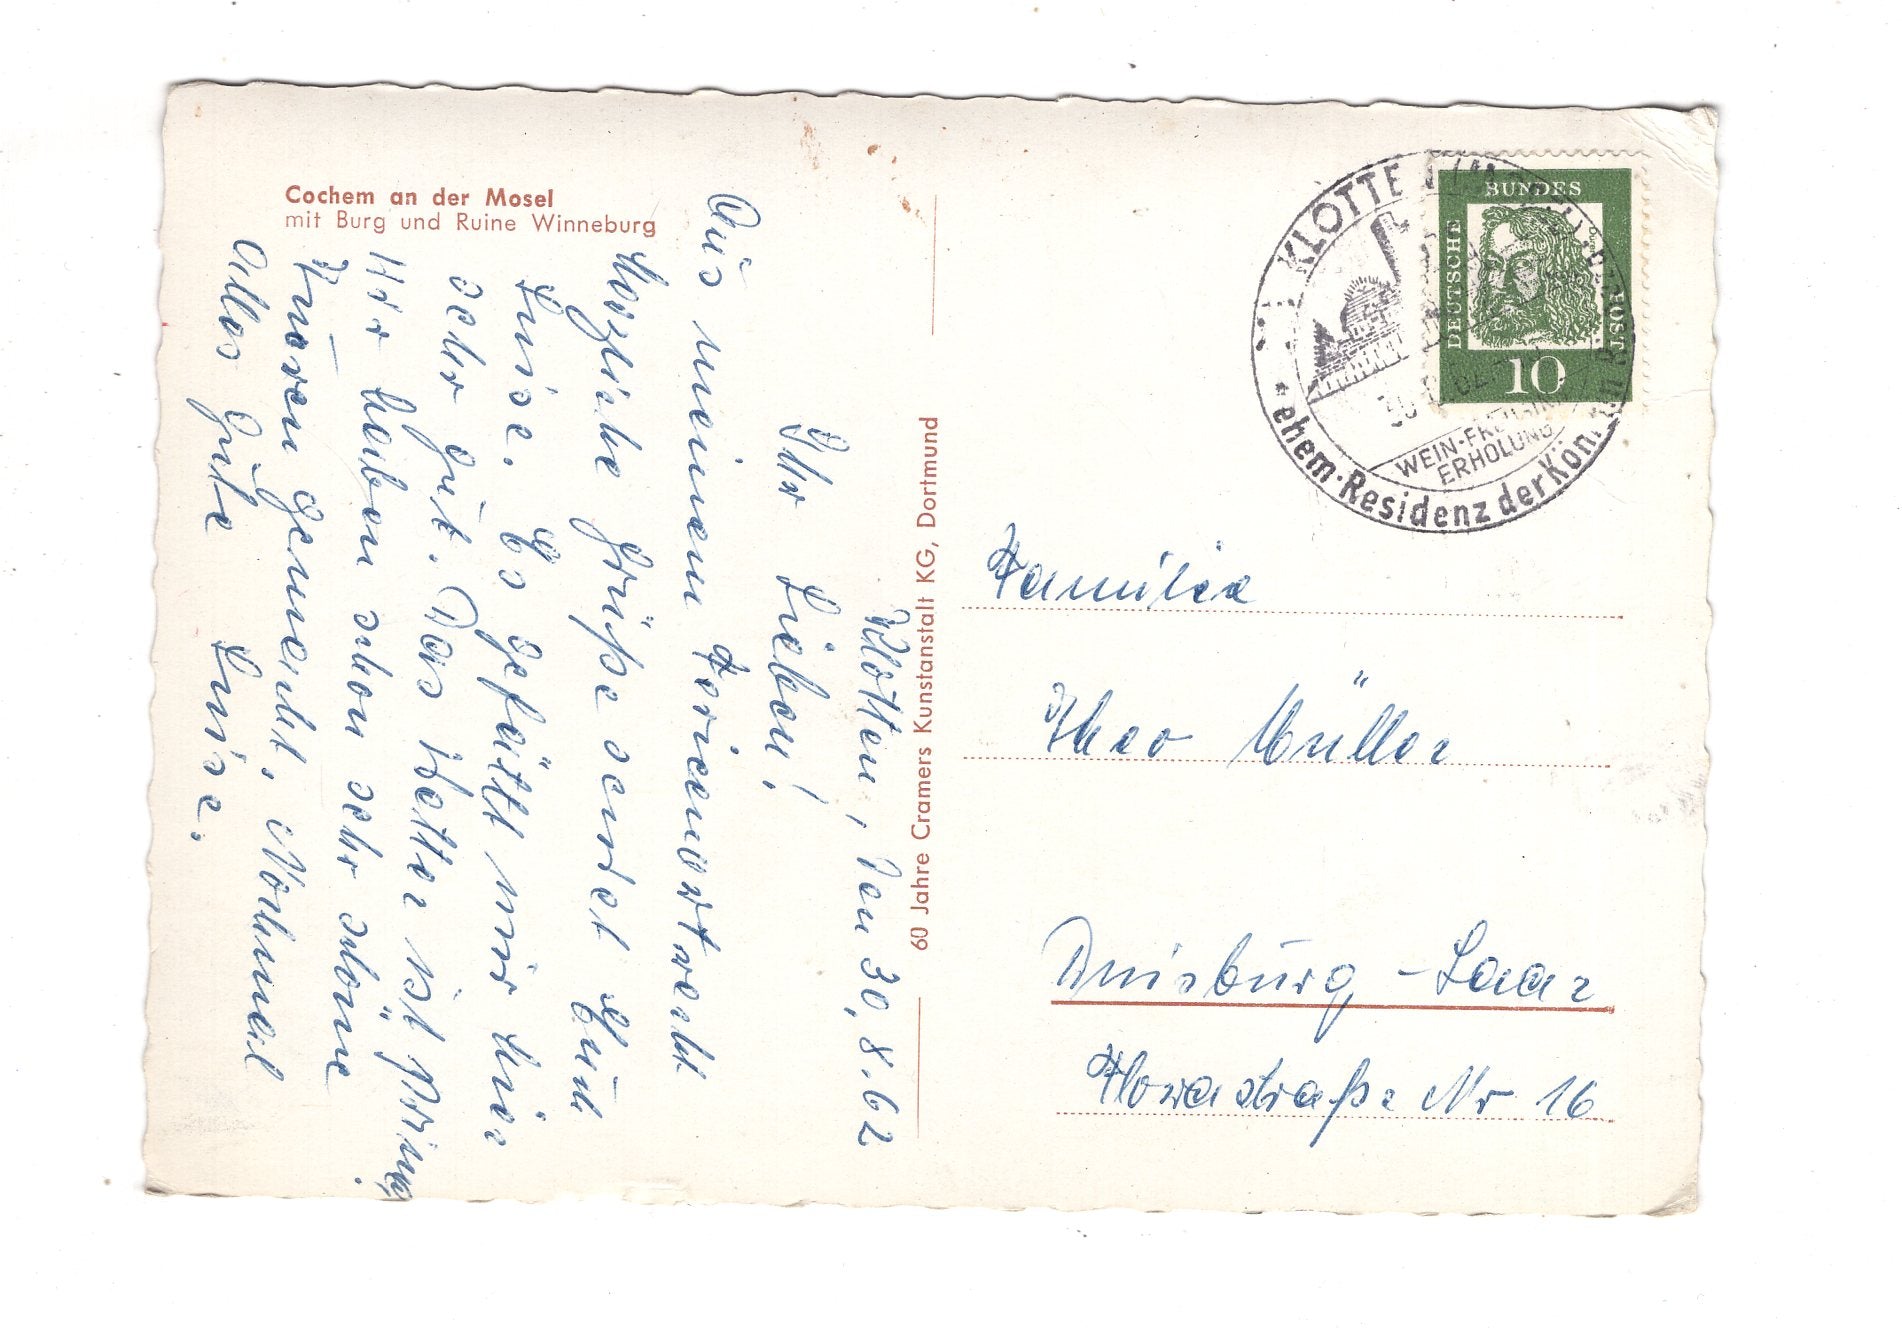 Cochem an der Mosel
mit Burg und Ruine Winneburg
Klotten, den 30.8.62
Ihr Lieben!
Aus meinem Ferienort
Herzliche Grüße sendet Euch
Luise. Es gefällt mir hier
sehr gut. Das Wetter ist prima.
Wir haben schon sehr schöne
Touren gemacht. Nochmal
Alles Gute Luise.
60 Jahre Cramers Kunstanstalt KG, Dortmund
KLOTTEN
ehem. Residenz der Königin
WEIN-
ERHOLUNG
DEUTSCHE
BUNDES
POST
10
Familie
Theo Müller
Duisburg-Laar
Florastraße Nr 16